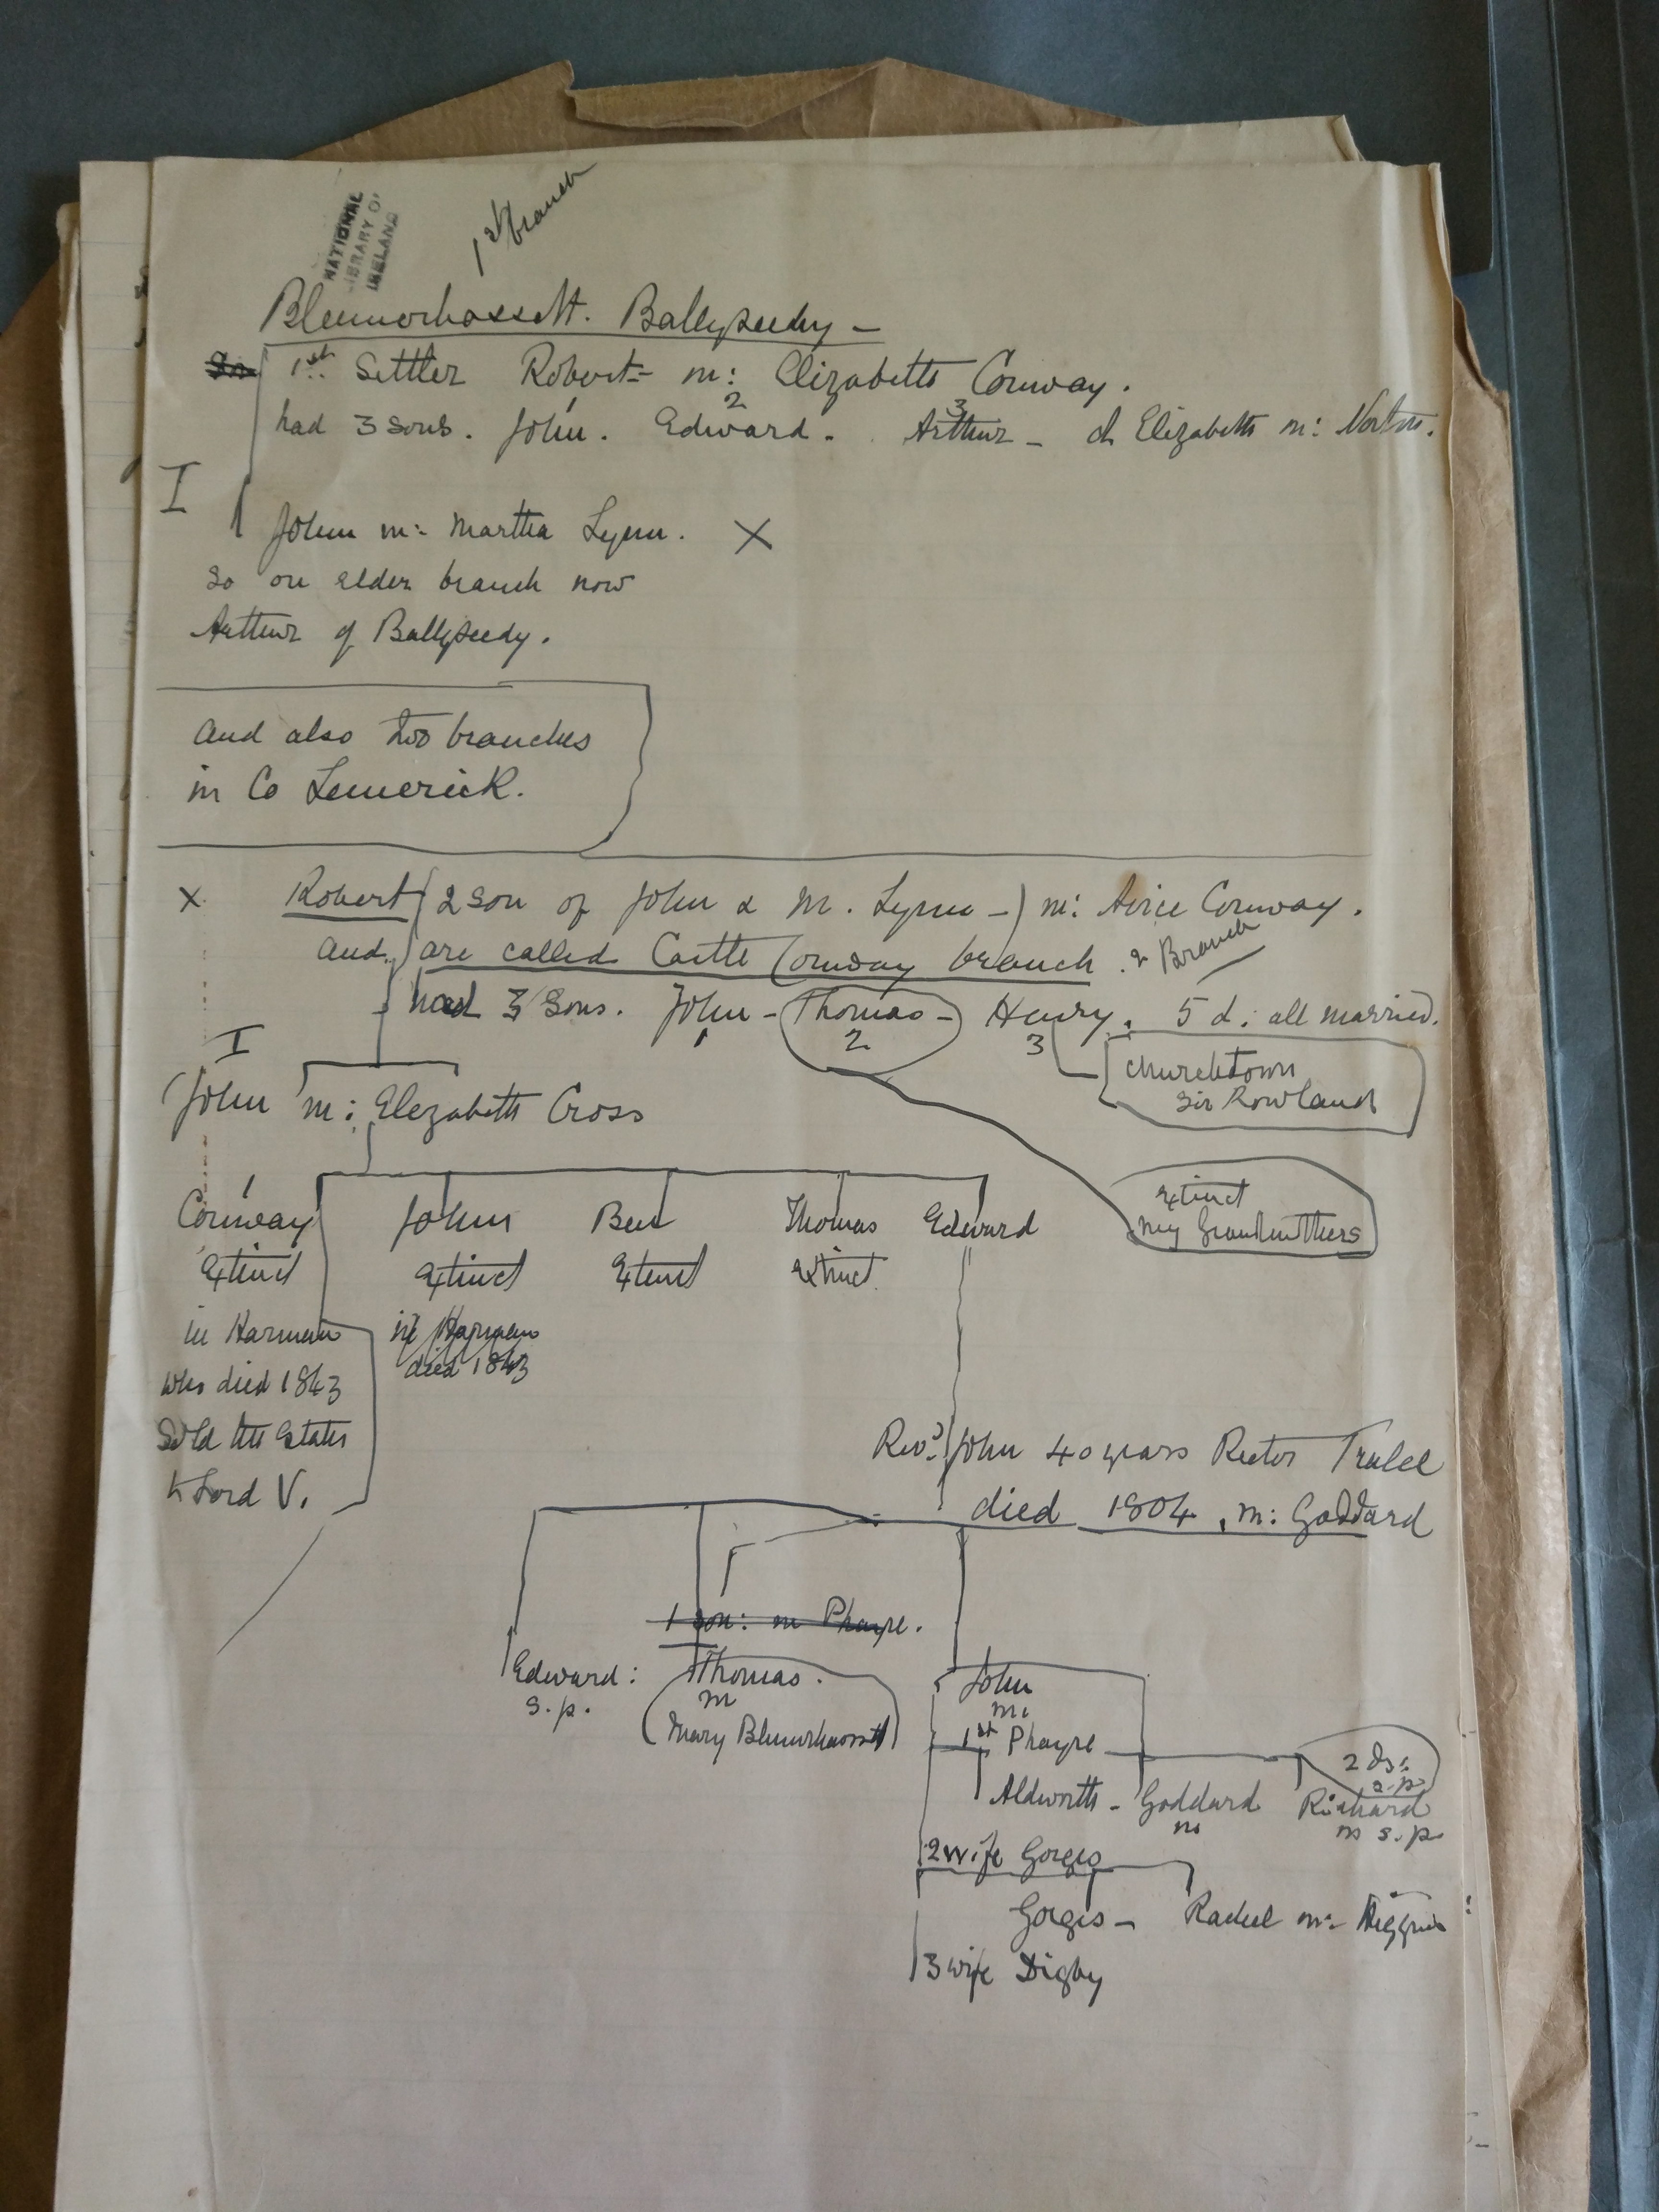 NATIONAL
LIBRARY OF
IRELAND
1st branch
Blennerhassett. Ballyseedy —
1st Settler Robert = m: Elizabeth Conway.
had 3 sons. John. 1 Edward. 2 Arthur — 3 d Elizabeth m:
I
John m: Martha Lynn. X
so on elder branch now
Arthur of Ballyseedy.
And also two branches
in Co Limerick.
X Robert (2 son of John & M. Lynn —) m: Avice Conway.
and are called Castle Conway branch. 2 Branch
had 3 sons. John — Thomas — Henry. 5 d: all married.
1 2 3
I
Churchtown
Sir Rowland
John m: Elezabeth Cross
Extinct
my Grandmothers
1
Conway John Ben Thomas Edward
Extinct Extinct Extinct Extinct
in Harman in Harman
who died 1843 died 1843
Sold the Estates
to Lord V.
Revd John 40 years Rector Tralee
died 1804, m: Goddard
1 son: m Phayre.
Edward: Thomas. John
s.p. m m:
Mary Blennerhassett 1st Phayre
2 ds:
s.p.
Aldworth — Goddard Richard
m m s.p.
2 wife Gorges
Gorges — Rachel m: Higgins
3 wife Digby